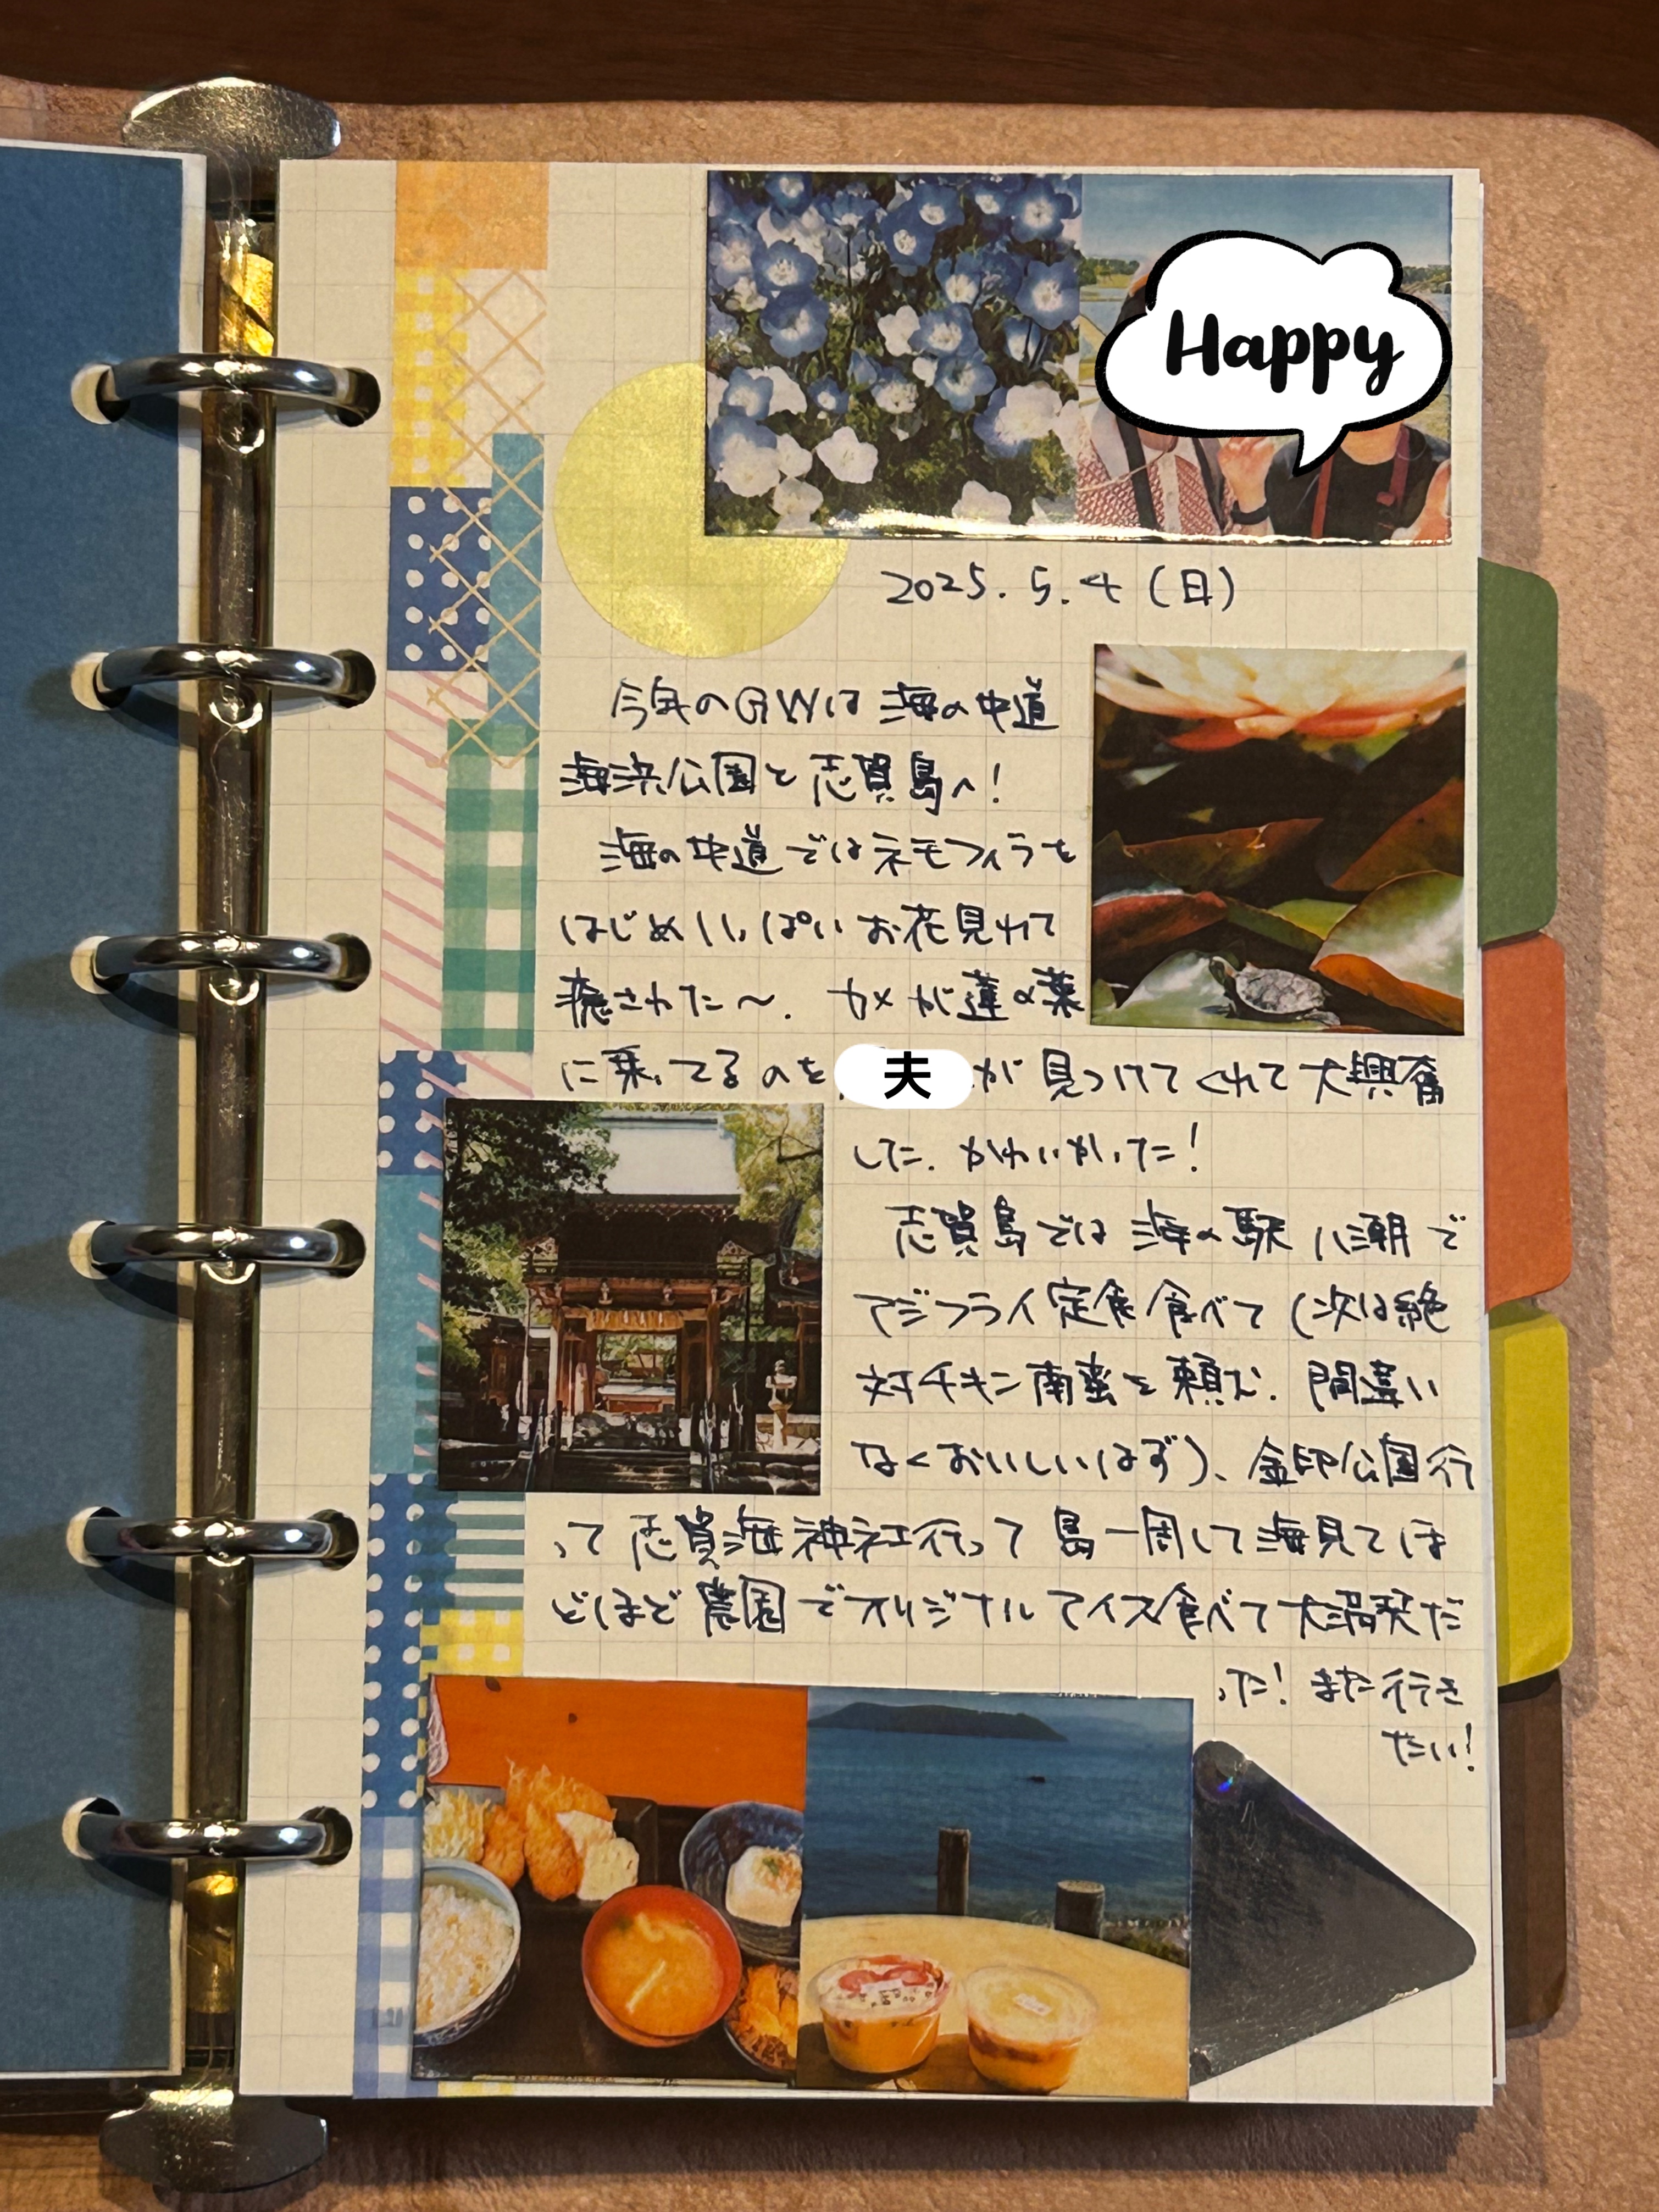 Happy
2025.5.4(日)
今年のGWは海の中道
海浜公園と志賀島へ!
海の中道ではネモフィラを
はじめいっぱいお花見れて
癒された〜. カメが蓮の葉
に乗ってるのを 夫 が見つけてくれて大興奮
した. かわいかった!
志賀島では海の駅 八潮で
アジフライ定食食べて (次は絶
対チキン南蛮を頼む. 間違い
なくおいしいはず)、金印公園行
って志賀海神社行って島一周して海見てほ
どほど農園でオリジナルアイス食べて大満喫だ
った! また行き
たい!